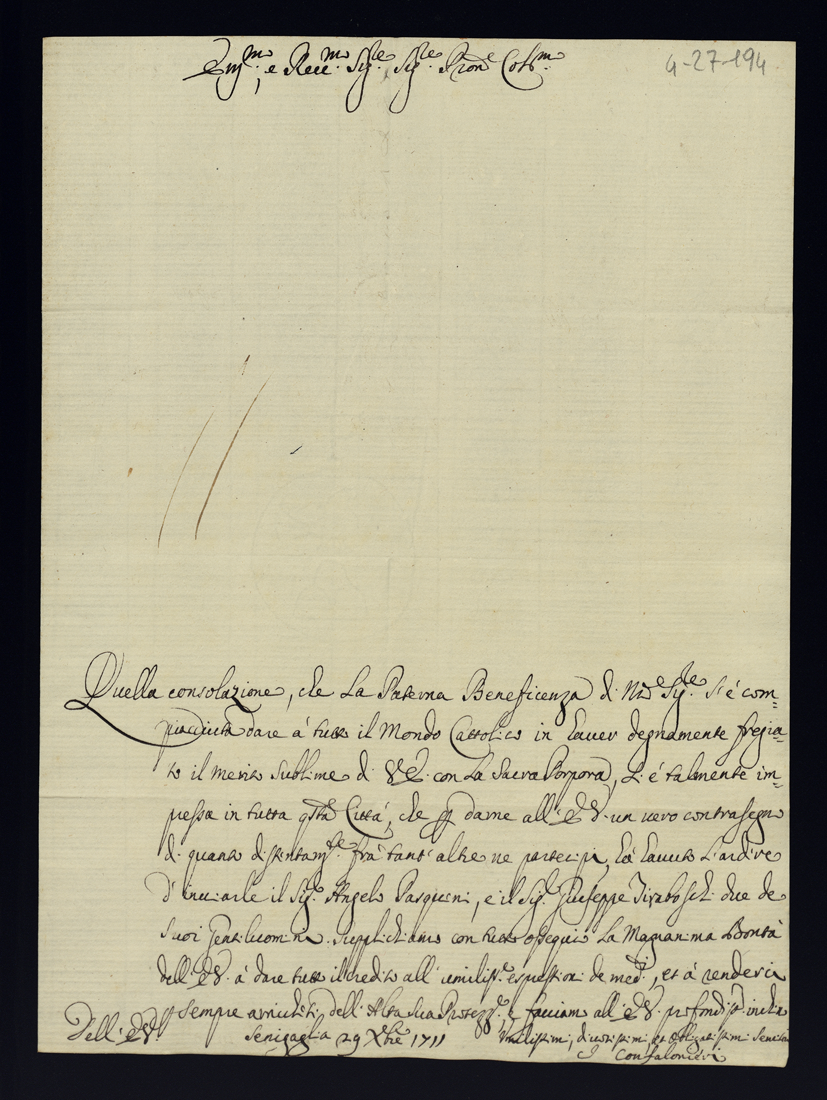 Em.mo, e Reu.mo Sig.re Sig.re Pron.e Col.mo
4-27-194
Quella consolazione, che La Paterna Beneficenza di Nro Sig.re s'è com=
piacciuta dare à tutto il Mondo Cattolico in hauer degnamente fregia=
to il merito sublime di VE. con La Sacra Porpora, s'è talmente im=
pressa in tutta q.sta Città, che p darne all'EV. un uero contrasegno
di quanto distintam.te frà tant'altre ne partecipi, hà hauuto l'ardire
d'inuiarle il Sig.r Angelo Pasquini, e il Sig.r Giuseppe Tiraboschi due de
suoi Gentiluomini. Supplichiamo con tutto ossequio La Magnanima Bontà
dell'EV. à dare tutto il credito all'umiliss.e espressioni de med.i, et à renderci
sempre arricchiti dell'Alta Sua Protezz.e, e facciam all'EV. profondiss.o inchino
Dell'EV. Senigaglia 29 Xbre 1711 Umilissimi, diuotissimi, et obligatissimi Seruitori
Il Confaloniere